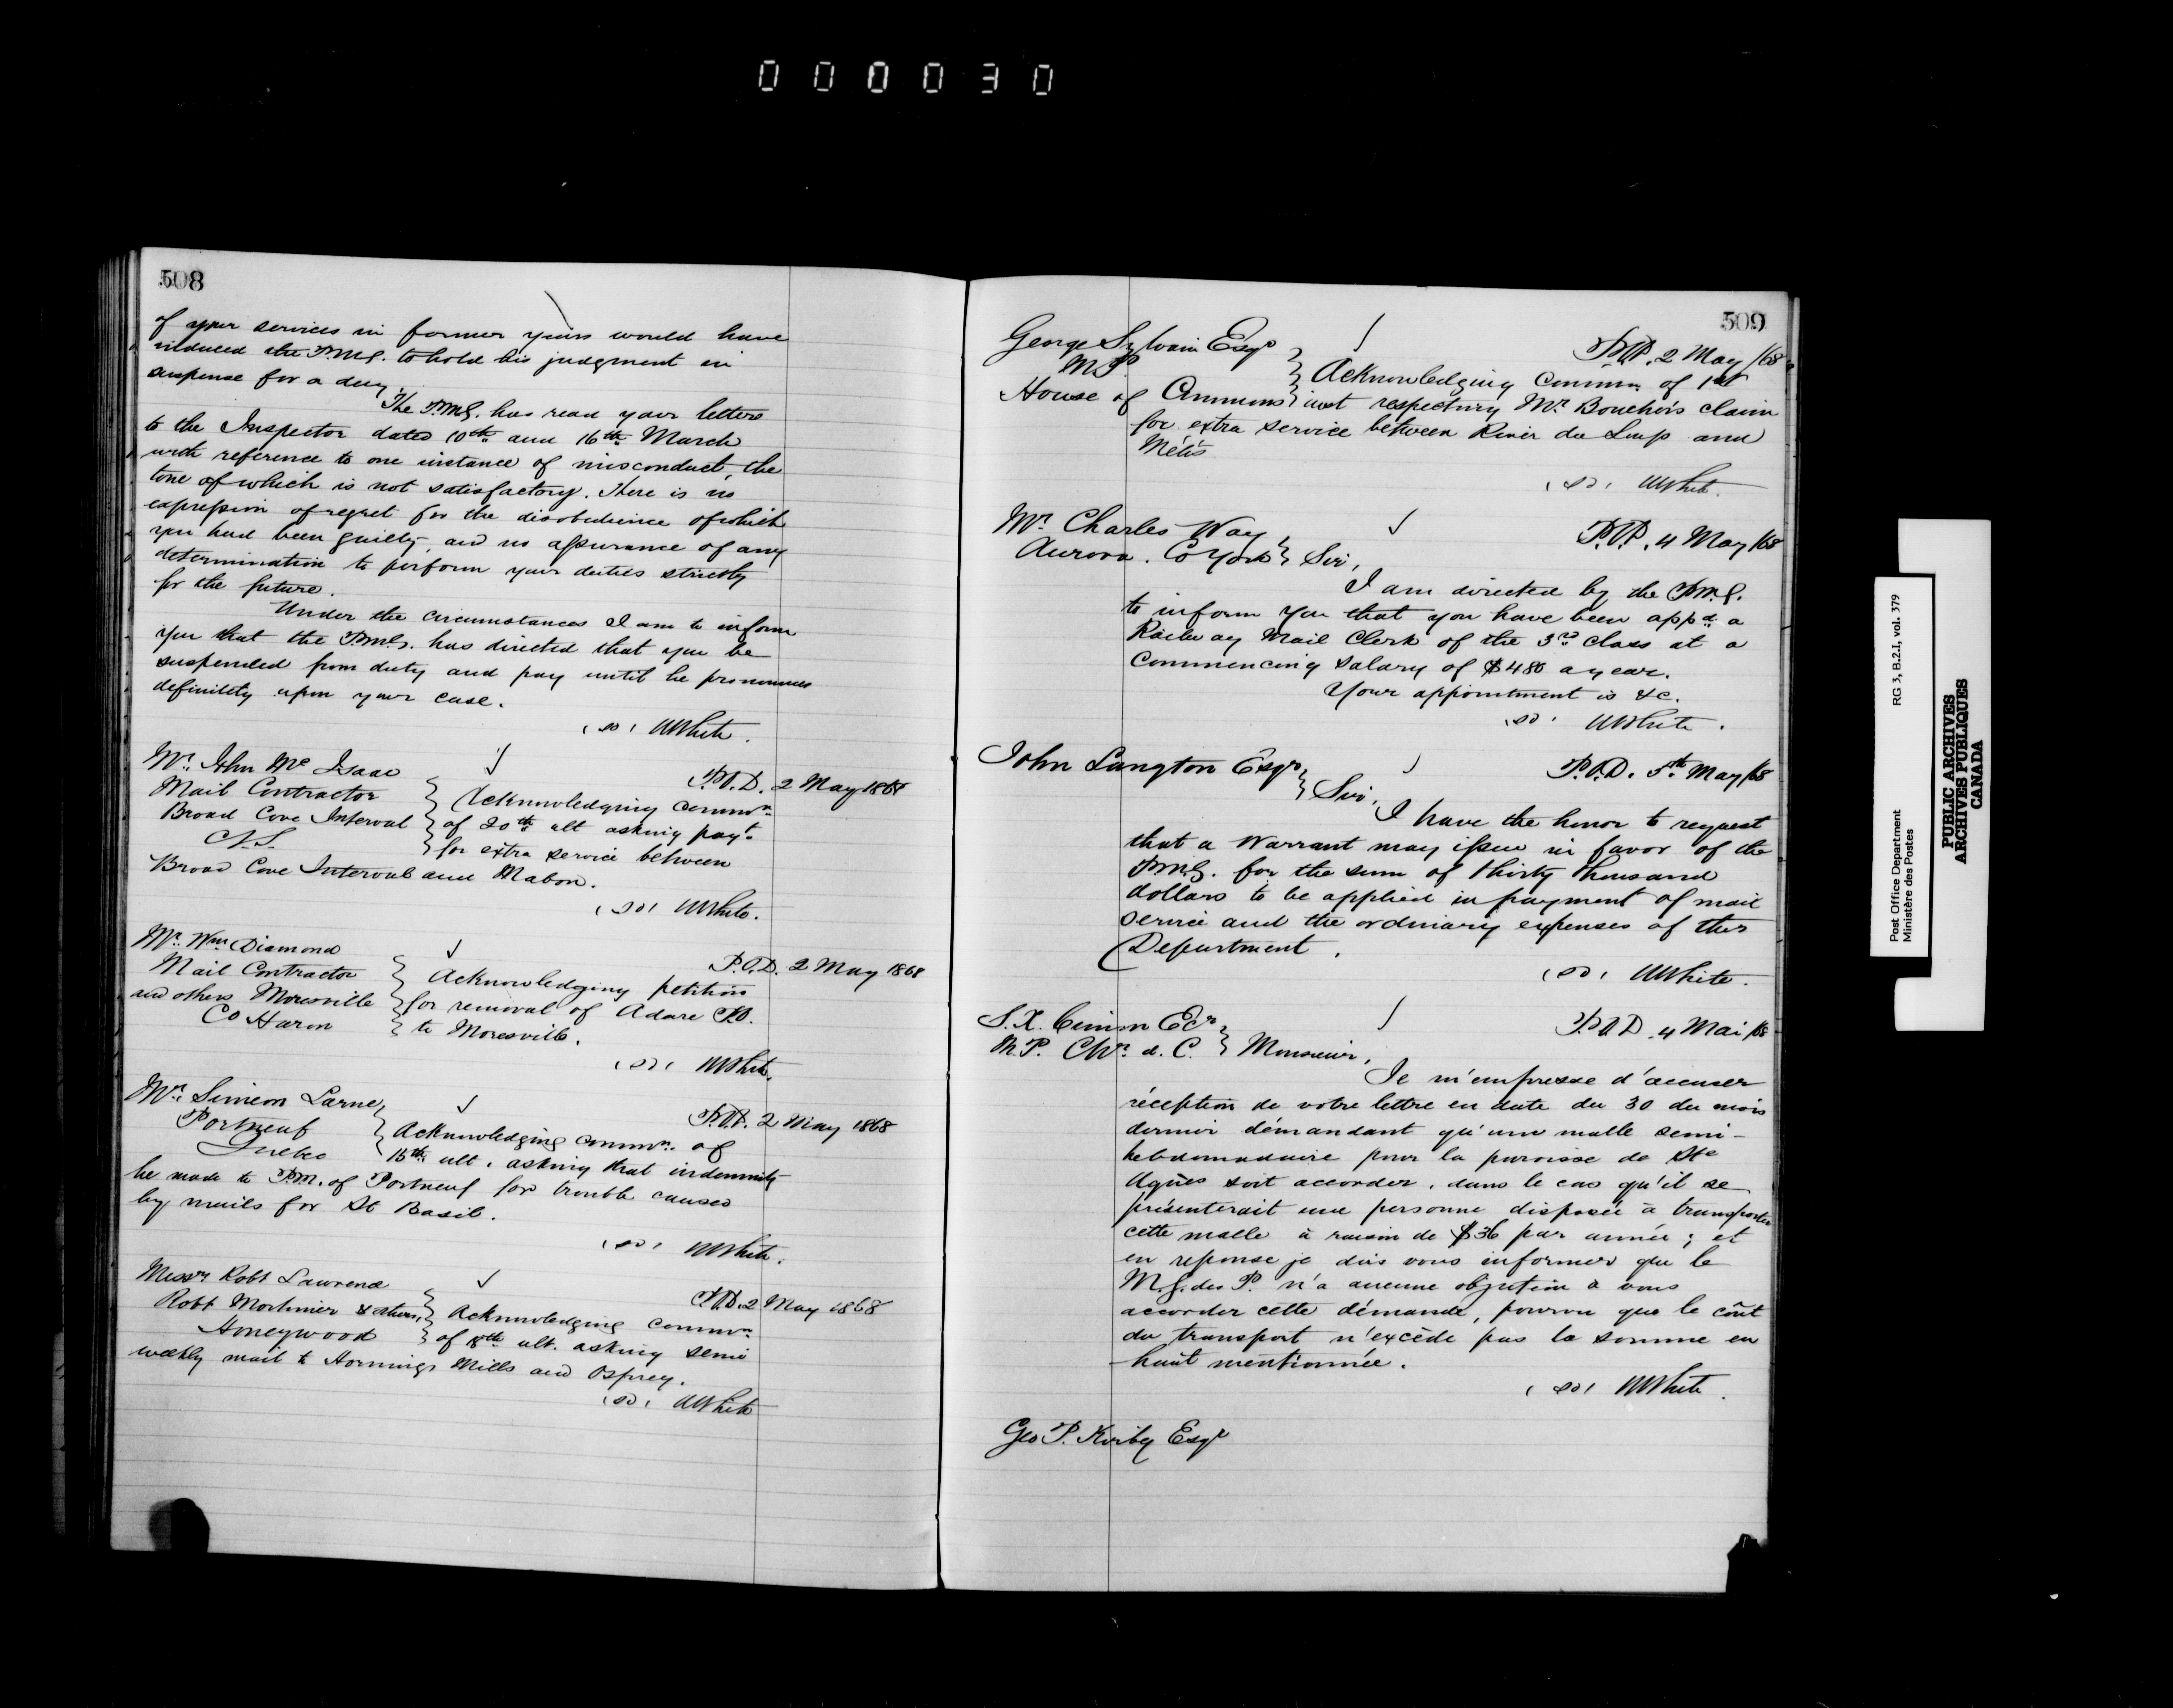 000030
508
of your services in former years would have
induced the P.M.G. to hold his judgment in
suspense for a day.
The P.M.G. has read your letters
to the Inspector dated 10th and 16th March
with reference to one instance of misconduct, the
tone of which is not satisfactory. There is no
expression of regret for the disobedience of which
you had been guilty, and no assurance of any
determination to perform your duties strictly
for the future.
Under the circumstances I am to inform
you that the P.M.G. has directed that you be
suspended from duty and pay until he pronounces
definitely upon your case.
(sd) W White.
Mr. John Mc Isaac
Mail Contractor
Broad Cove Interval
N.S.
P.O.D. 2 May 1868
Acknowledging commn.
of 20th ult asking payt.
for extra service between
Broad Cove Interval and Mabou.
(sd) W White.
Mr. Wm Diamond
Mail Contractor
and others Moresville
Co Huron
P.O.D. 2 May 1868
Acknowledging petition
for removal of Adare P.O.
to Moresville.
(sd) W White.
Mr. Simeon Larue,
Portneuf
Quebec
P.O.D. 2 May 1868
Acknowledging commn. of
15th ult. asking that indemnity
be made to P.M. of Portneuf for trouble caused
by mails for St Basil.
(sd) W White.
Messrs Robt Lawrence
Robt Mortimer & others,
Honeywood
P.O.D. 2 May 1868
Acknowledging commn.
of ult. asking semi
weekly mail to Hornings Mills and Osprey.
(sd) W White
509
George Sylvain Esqr
M.P.
House of Commons
P.O.D. 2 May /68
Acknowledging Commn. of 1st
inst respecting Mr. Bouchér's claim
for extra service between River du Loup and
Métis
(sd) W White.
Mr. Charles Way,
Aurora. Co York
P.O.D. 4 May /68
Sir,
I am directed by the P.M.G.
to inform you that you have been appd. a
Railway Mail Clerk of the 3rd class at a
commencing salary of $480 a year.
Your appointment is &c.
(sd) W White.
John Langton Esqr,
P.O.D. 5th May /68
Sir,
I have the honor to request
that a Warrant may issue in favor of the
P.M.G. for the sum of thirty thousand
dollars to be applied in payment of mail
service and the ordinary expenses of this
Department.
(sd) W White.
S. X. Cimon Ecr,
M.P. Chr. d. C.
P.O.D. 4 Mai /68
Monsieur,
Je m'empresse d'accuser
réception de votre lettre en date du 30 du mois
dernier démandant qu'une malle semi-
hebdomadaire pour la paroisse de Ste
Agnès soit accorder, dans le cas qu'il se
présenterait une personne disposée à transporter
cette malle à raison de $36 par année; et
en reponse je dois vous informer que le
M.G. des P. n'a aucune objection à vous
accorder cette démande, pourvu que le coût
du transport n'excède pas la somme en
haut mentionnée.
(sd) W White.
Geo P. Kirby Esqr
Post Office Department
Ministère des Postes
RG 3, B.2.I, vol. 379
PUBLIC ARCHIVES
ARCHIVES PUBLIQUES
CANADA